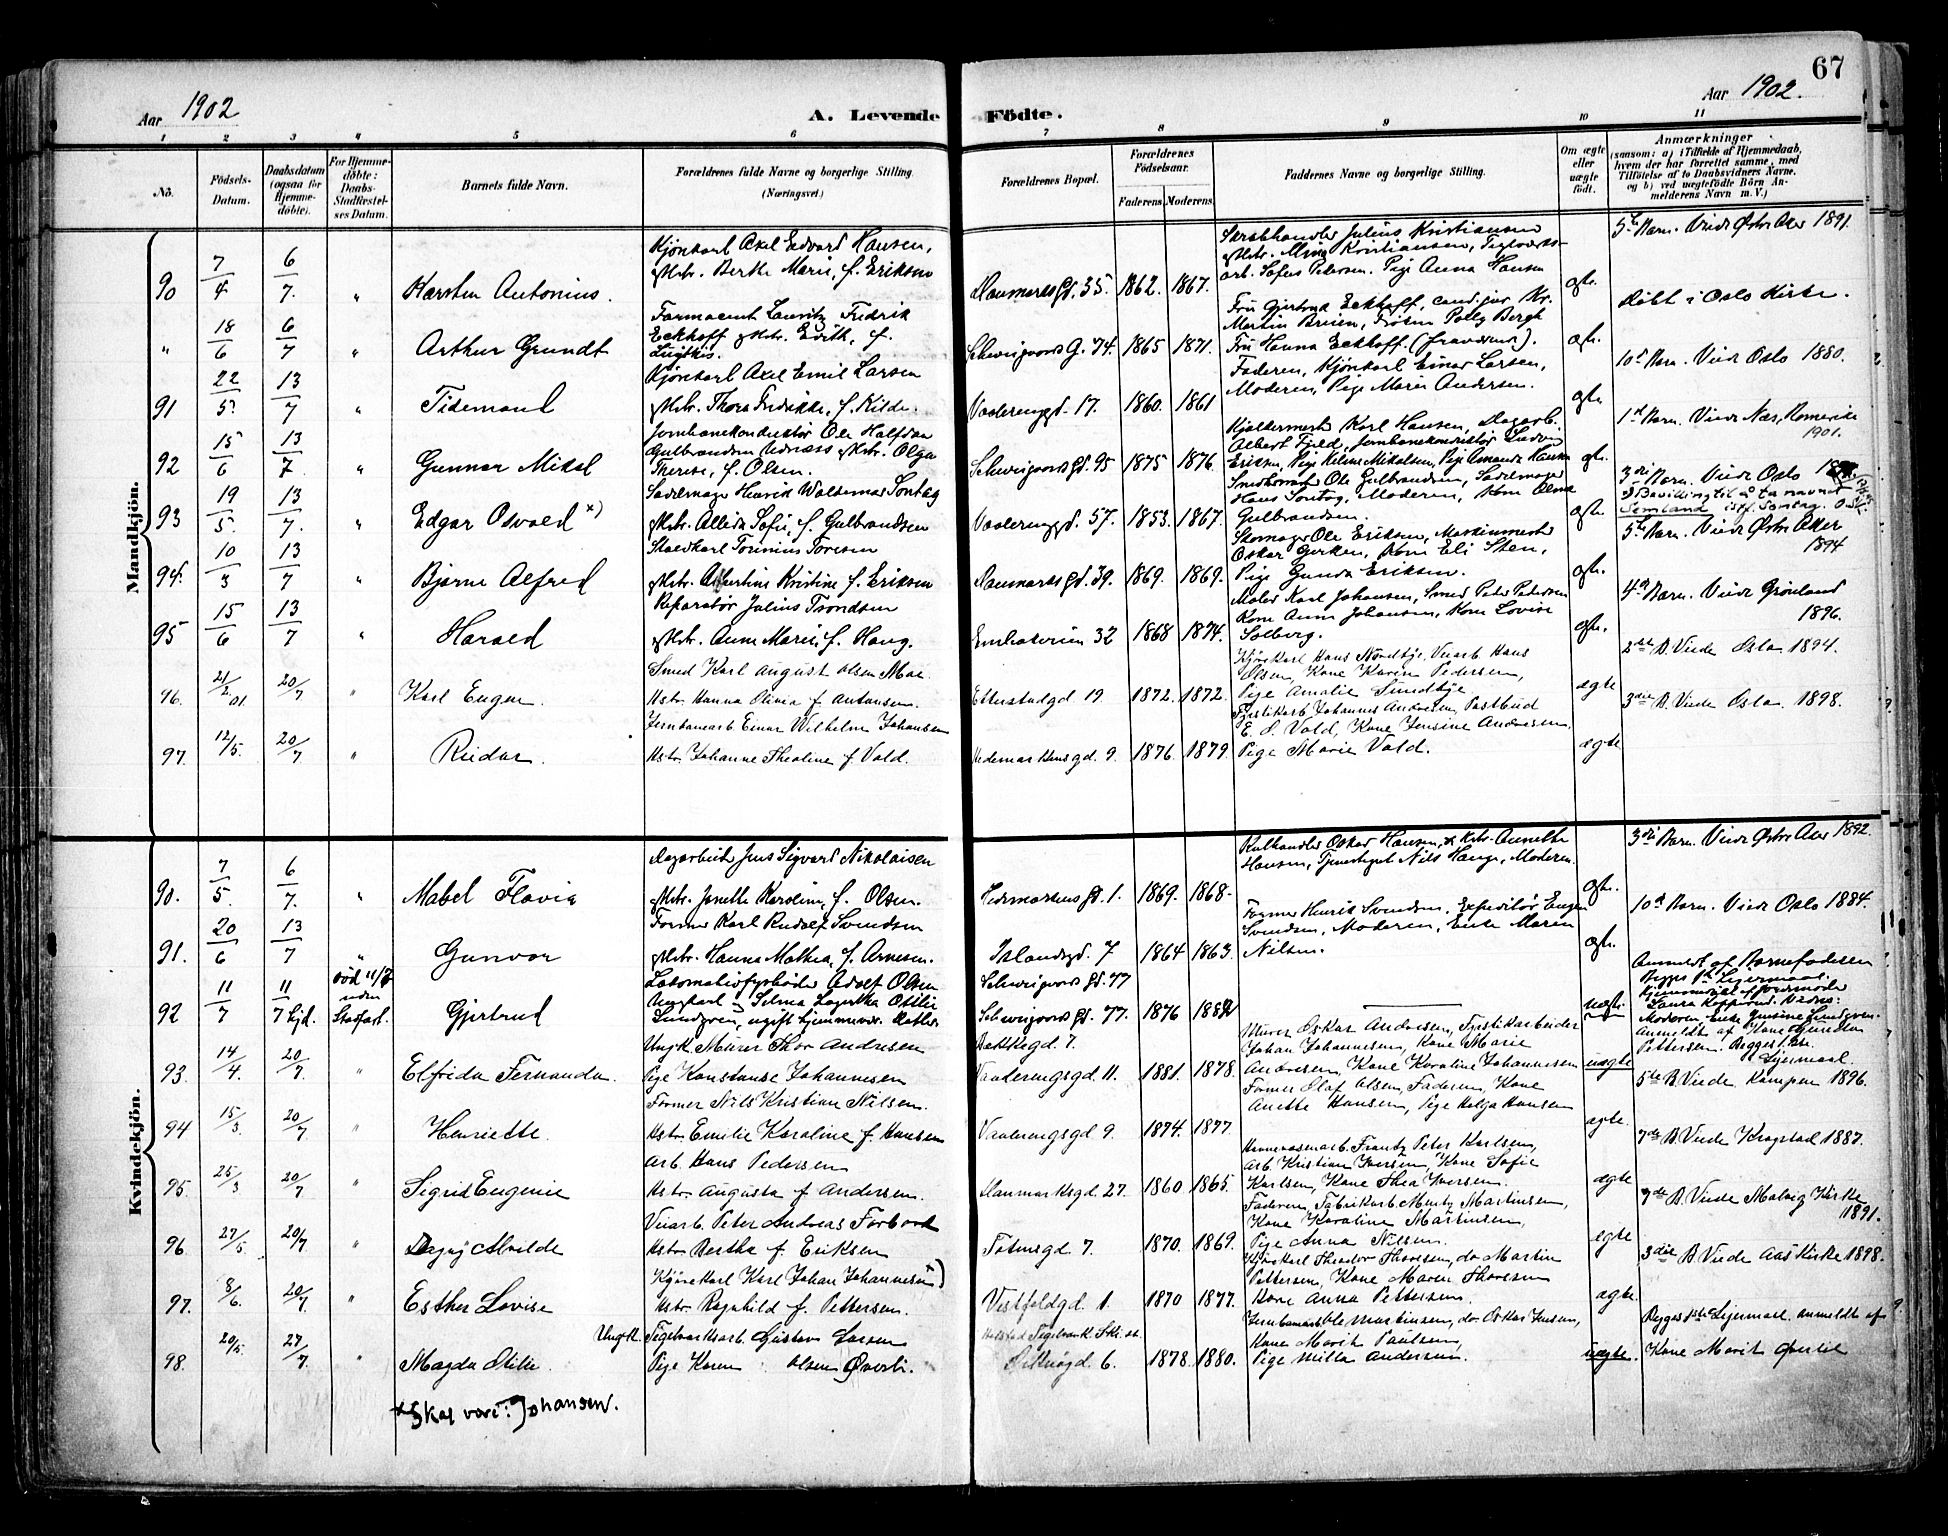 67
Aar 1902
A. Levende Födte.
Aar 1902.
1 2 3 4 5 6 7 8 9 10 11
Nō.
Födsels-
Datum.
Daabsdatum
(ogsaa for
Hjemme-
döbte).
For Hjemme-
döbte:
Daabs-
Stadfæstel-
ses Datum.
Barnets fulde Navn.
Forældrenes fulde Navne og borgerlige Stilling.
(Næringsvei.)
Forældrenes Bopæl.
Forældrenes
Födselsaar.
Faderens. Moderens.
Faddernes Navne og borgerlige Stilling.
Om ægte
eller
uægte
födt.
Anmærkninger
(saasom: a) i Tilfælde af Hjemmedaab,
hvem der har forrettet samme, med
Tilföielse af to Daabsvidners Navne,
og b) ved uægtefödte Börn An-
melderens Navn m. V.)
Mandkjön.
90 7/4 6/7. " Karsten Antonius.
Kjörekarl Axel Edvard Hansen,
Hstr. Berthe Marie, f. Eriksen
Danmarksgd. 35. 1862. 1867.
Julius Kristiansen
Hstr. Kristiansen,
arb. Sofus Petersen. Pige Anna Hansen
ægte.
5te Barn. Viede Østre Aker 1891.
" 18/6 6/7 " Arthur Grundt
Farmaceut Lauritz Fredrik
Eckhoff Hstr. Edith, f.
Schweigaards G. 74. 1865 1871.
Fru Gjertrud Eckhoff, cand. jur. Kr.
Martin Breien, Frøken Polly Bergh
Fru Hanna Eckhoff (fraværende).
ægte.
Døbt i Oslo Kirke.
91 22/5. 13/7 " Tidemand
Kjörekarl Axel Emil Larsen
Hstr. Thora Fredrikke, f. Kilde.
Vaalerenggd. 17. 1860. 1861
Faderen, Kjörekarl Einar Larsen,
Moderen, Pige Marie Andersen.
ægte
10de Barn. Viede Oslo 1880.
92 15/6 13/7 " Gunnar Mikal
Jernbanekonduktør Ole Halfdan
Gulbrandsen Hstr. Olga
Therese, f. Olsen.
Schweigaards gd. 95 1875 1876.
Karl Hansen, Dagarb.
Albert Fjeld, Jernbanekonduktør
Eriksen, Pige Mikalsen, Pige Amanda Hansen
ægte.
1ste Barn. Viede Næs, Romerike
1901.
93 19/5 13/7. " Edgar Osvald x)
Sadelmager Henrik Waldemar Sontag
Hstr. Sofie, f. Gulbrandsen
Vaalerenggd. 57. 1853. 1867.
Ole Gulbrandsen, Sadelmager
Hans Sontag, Moderen, Kone Olma
Gulbrandsen.
ægte.
3die Barn. Viede Oslo
Bevilling til å ta navnet
Semland istf. Sontag.
94. 10/3 13/7 " Bjarne Alfred
Staldkarl Torinius Toresen
Hstr. Albertine Kristine f. Eriksen
Danmarks gd. 39. 1869. 1869.
Skomager Ole Eriksen, Maskinmester
Oskar Gerken, Kone Eli Sten,
Pige Gunda Eriksen.
ægte.
5te Barn. Viede Østre Aker
1894
95 15/6 13/7 " Harald
Reparatør Julius Trondsen
Hstr. Anne Marie, f. Haug.
32 1868 1874.
Maler Karl Johansen, Smed Peter Petersen
Kone Anna Johansen, Kone Lovise
Solberg.
ægte.
4de Barn. Viede Grønland
1896.
96. 21/2 01. 20/7 " Karl Eugen
Smed Karl August Olsen Moe
Hstr. Hanna Olivia f. Antonsen.
Etterstadgd 19 1872. 1872.
Kjørekarl Hans Nordbye, Veiarb. Hans
Olsen, Kone Karen Pedersen,
Pige Amalie Sundbye
ægte
2det B. Viede Oslo 1894.
97. 12/5. 20/7 " Reidar.
Jernbanearb Einar Wilhelm Johansen
Hstr. Johanne Theoline f Vold.
Hedemarkensgd. 9. 1876. 1879.
Fyrstikarb Johannes Andresen, Postbud
E. S. Vold, Kone Jensine Andresen,
Pige Marie Vold.
ægte
3die B. Viede Oslo 1898.
Kvindekjön.
90. 7/5. 6/7. " Mabel Flavia
Dagarbeider Jens Sigvard Nikolaisen
Hstr. Janette Karoline, f. Olsen.
Hedemarkens gd. 1. 1869. 1868.
Kulhandler Oskar Hansen, Hstr. Annette
Hansen, Nils Hauge, Moderen.
ægte.
3die Barn. Viede Østre Aker 1892.
91. 20/6 13/7 " Gunvor
Former Karl Rudolf Svendsen
Hstr. Hanna Mathea, f. Arnesen.
Islandsgd. 7 1864 1863.
Former Henrik Svendsen. Expeditør Eugen
Svendsen, Moderen, Enke Maren
Nilsen.
ægte.
10de Barn. Viede Oslo 1884.
92 11/7 11/7 hjd. død 11/7
uden
Stadfæst. Gjertrud
Lokomotivfyrbøder Adolf Olsen
Ungkarl & Selma Lagertha Otilie
Lundgren, ugift hjemmevær. Datter
Schweigaards gd. 77
Schweigaards gd. 77. 1876 1882
uægte
Anmeldt af Barnefaderen
Begges 1ste Leiermaal.
Hjemmedøbt af Jordmoder
Laura Vidne:
Moderen Enke Jensine Lundgren
93. 14/4. 20/7. " Elfrida Fernanda.
Ungk. Murer Thor Andresen
Pige Konstanse Johannesen
Bakkegd. 7.
Vaalerengsgd. 11. 1881. 1878.
Murer Oskar Andresen, Fyrstikarbeider
Johan Johannesen, Kone Marie
Andresen, Kone Karoline Johannesen
uægte
Anmeldt af Kone Gunda
Pettersen. Begges 1ste
Leiermaal.
94 15/3 20/7 " Henriette.
Former Nils Kristian Nilsen.
Hstr. Emilie Karoline f. Hansen
Vaalerengsgd. 9. 1874. 1877.
Former Olaf Olsen, Faderen, Kone
Anette Hansen, Pige Helga Hansen
ægte.
5te B. Viede Kampen 1896.
95. 25/3 20/7 " Sigrid Eugenie
Arb. Hans Pedersen
Hstr. Augusta f Andersen.
Danmarksgd. 27. 1860 1865.
Frantz Peter Karlsen,
Arb. Kristian Iversen, Kone Sofie
Karlsen, Kone Thea Iversen.
ægte
7de B. Viede Kragstad 1887.
96 27/5 20/7 " Dagny Alvilde
Veiarb. Peter Andreas Forbord
Hstr. Bertha f. Eriksen
Totensgd 7. 1870. 1869.
Faderen, Fabrikarb. Martinsen,
Kone Karoline Martinsen,
Pige Anna Nilsen.
ægte
7de B. Viede Malvig Kirke
1891.
97. 8/6. 20/7. " Esther Lovise
Kjørekarl Karl Johan Johannesen x)
Hstr. Ragnhild f. Pettersen.
Vestfoldgd. 1. 1870 1877.
Kjørekarl Theodor Thoresen, do Martin
Pettersen, Kone Maren Thoresen
Kone Anna Pettersen.
ægte.
3die B. Viede Aas Kirke 1898.
98. 20/5. 27/7. " Magda Otilie.
Ungk. Teglværksarb. Gustav Larsen
Pige Karen Olsen Øverli.
6. 1878. 1880.
Jernbanearb Ole Martinsen, do Oskar Jensen,
Kone Marit Paulsen,
Pige Milla Andersen.
uægte.
Begges 1ste Leiermaal anmeldt af
Kone Marit Øverlie
x Skal være: Johansen.